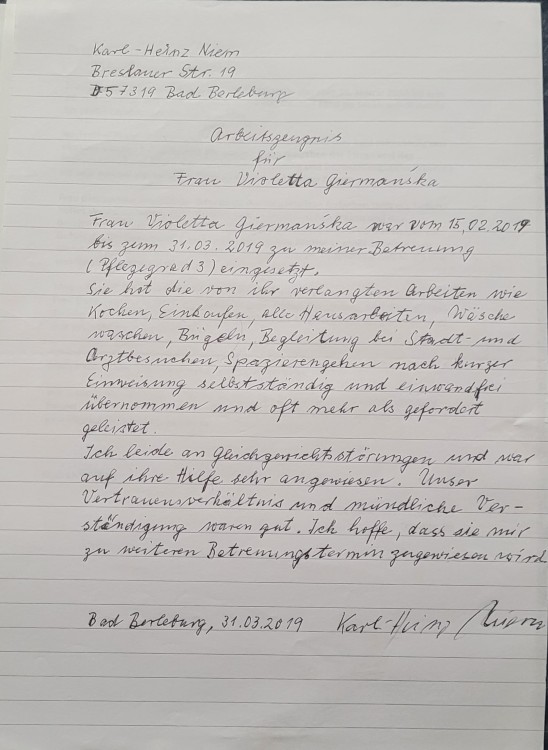 Karl-Heinz Niem
Breslauer Str. 19
D57319 Bad Berleburg
Arbeitszeugnis
für
Frau Violetta Giermańska
Frau Violetta Giermańska war vom 15.02.2019
bis zum 31.03.2019 zu meiner Betreuung
(Pflegegrad 3) eingesetzt.
Sie hat die von ihr verlangten Arbeiten wie
Kochen, Einkaufen, alle Hausarbeiten, Wäsche
waschen, Bügeln, Begleitung bei Stadt- und
Arztbesuchen, Spazierengehen nach kurzer
Einweisung selbstständig und einwandfrei
übernommen und oft mehr als gefordert
geleistet.
Ich leide an Gleichgewichtsstörungen und war
auf ihre Hilfe sehr angewiesen. Unser
Vertrauensverhältnis und mündliche Ver-
ständigung waren gut. Ich hoffe, dass sie mir
zu weiteren Betreuungstermin zugewiesen wird
Bad Berleburg, 31.03.2019 Karl-Heinz Niem